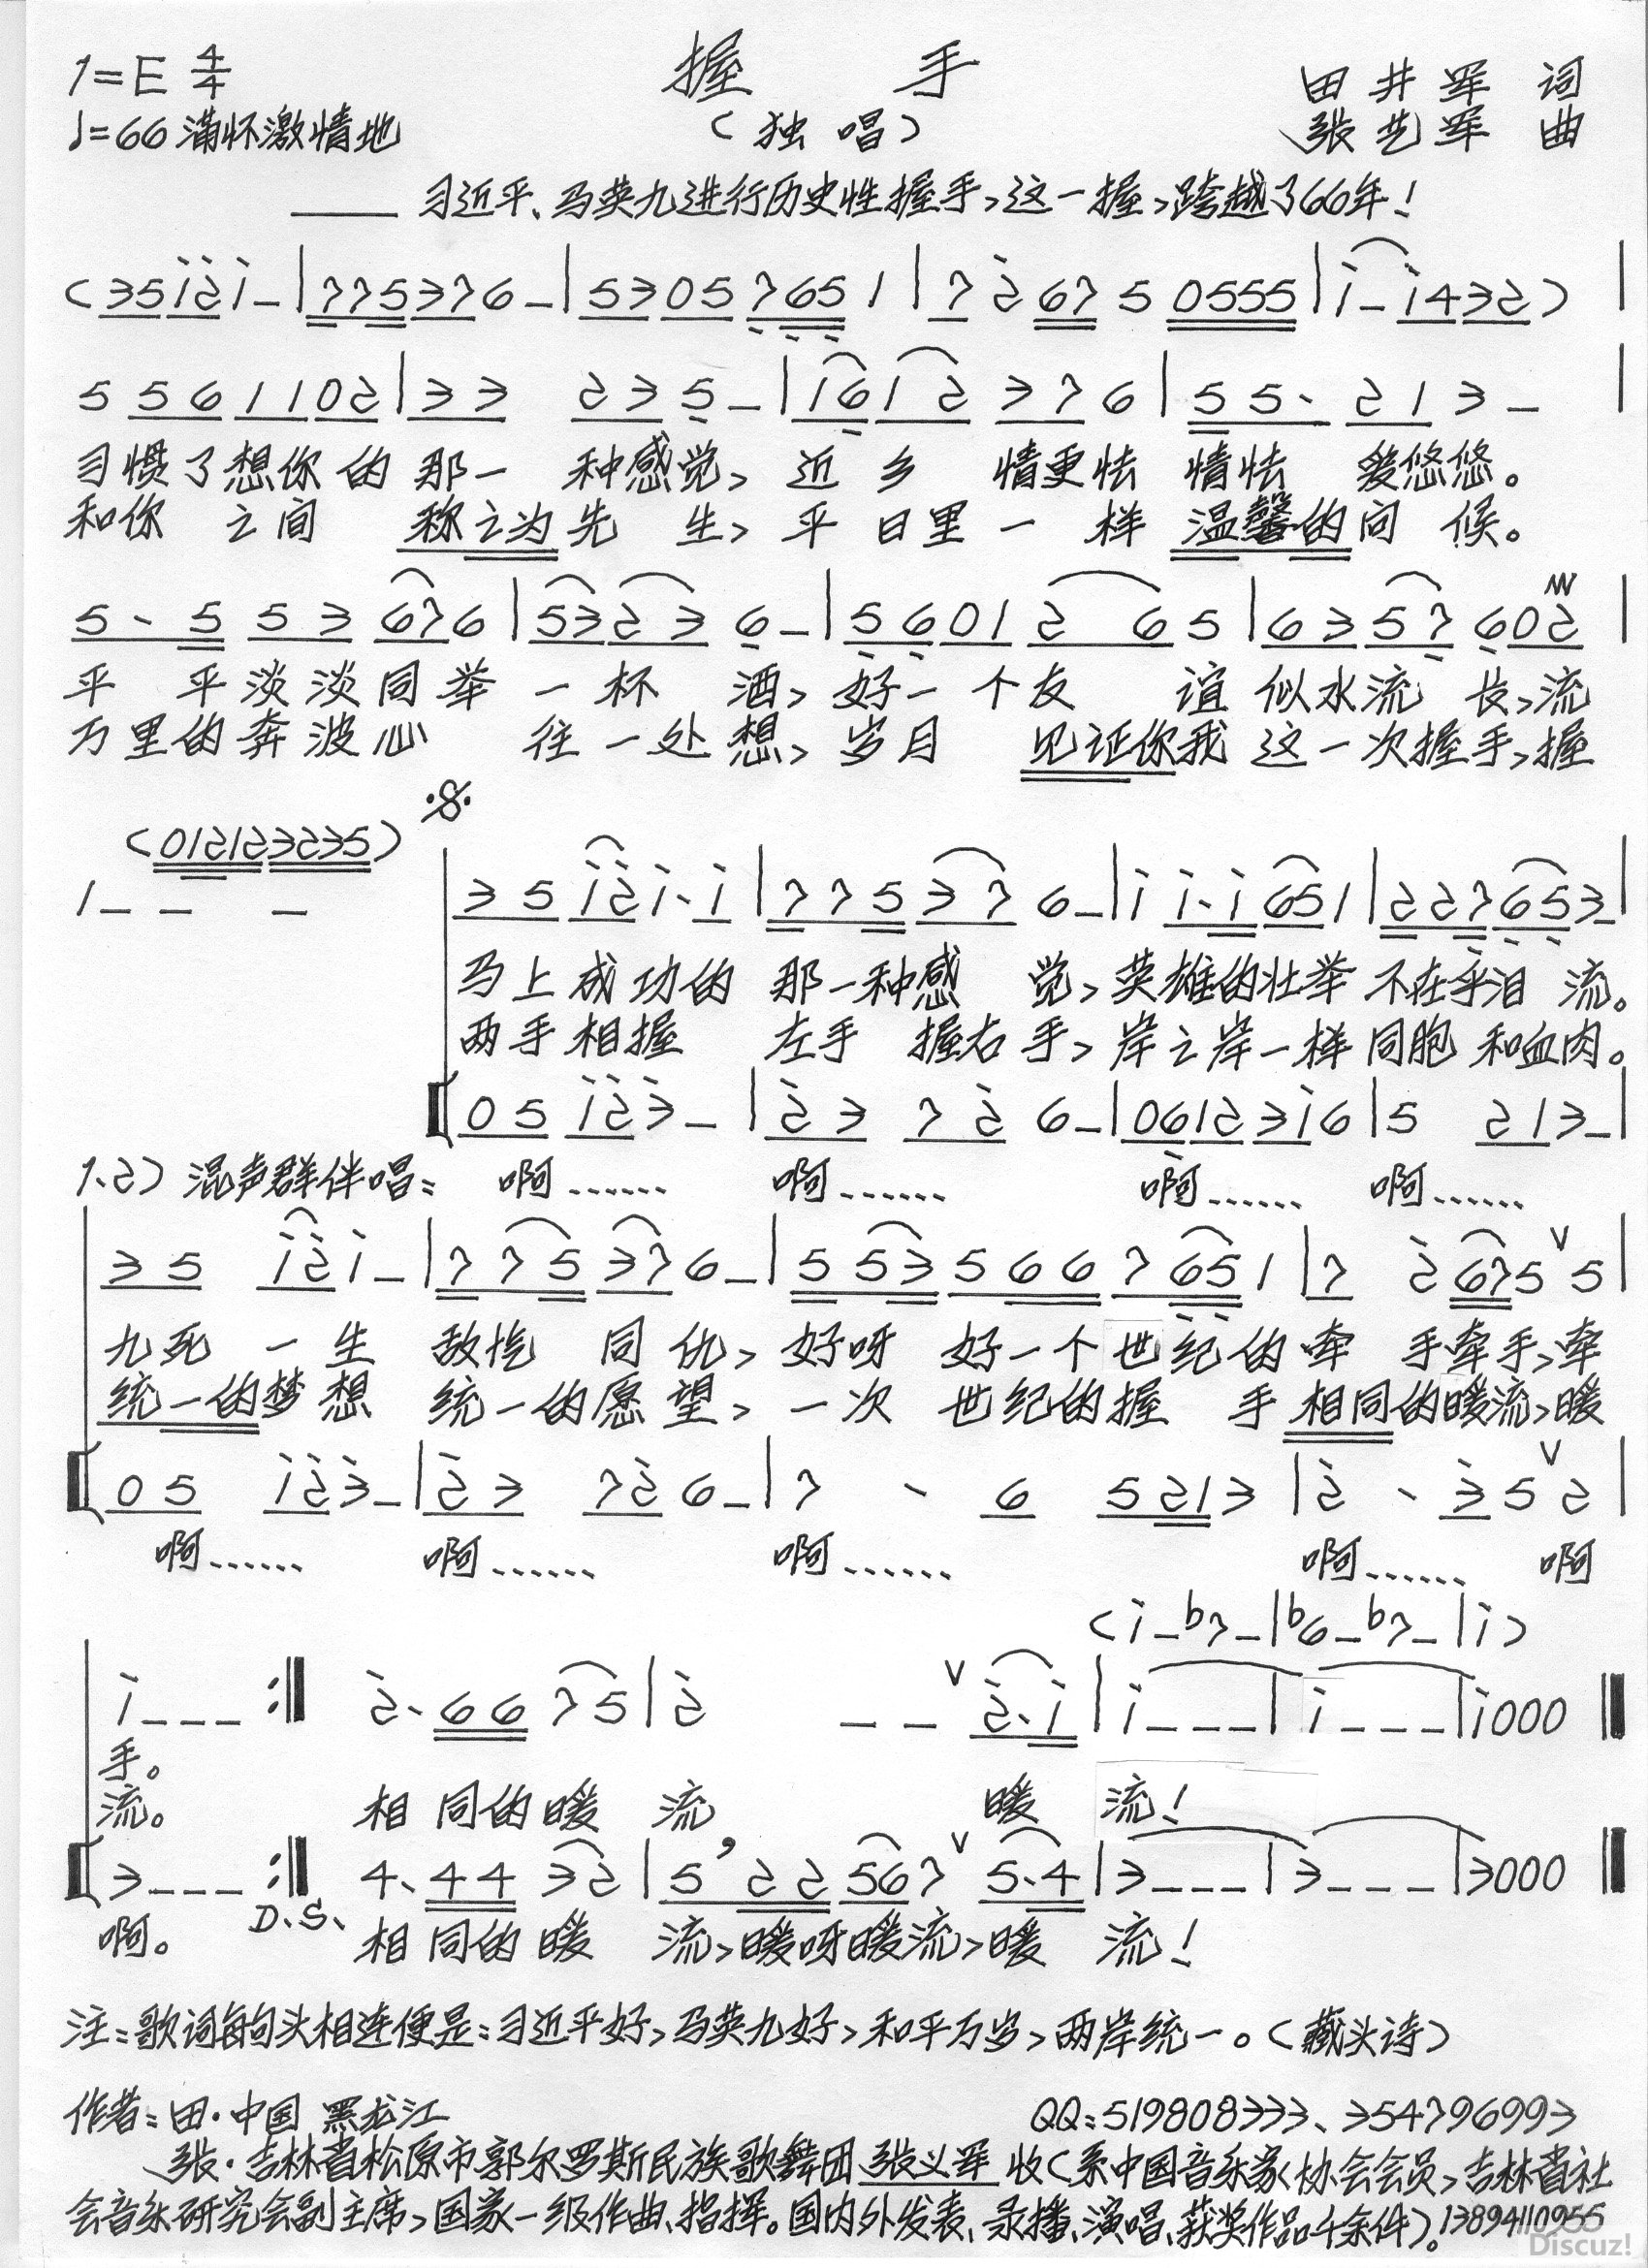 1=E 4/4
握 手
田井军 词
♩=66 满怀激情地
（独 唱）
张艺军 曲
——习近平、马英九进行历史性握手，这一握，跨越了66年！
(35i̇2̇i̇–|775376–|53057651|72̇6750555|i̇–i̇432)|
5561102|33 235–|1612376|55·213–|
习惯了想你的那一 种感觉，近乡 情更怯 情怯 爱悠悠。
和你 之间 称之为先 生，平日里一样 温馨的问 候。
5·553676|5323 6–|5601265|6357602|
平 平淡淡同举一杯 酒，好一个友 谊似水流 长，流
万里的奔波心 往一处想，岁月 见证你我这一次握手，握
(012123235)
1– – –
35i̇2̇i̇·i̇|77537 6–|i̇i̇·i̇651|227653–|
马上成功的那一种感 觉，英雄的壮举不在乎泪 流。
两手相握 左手 握右手，岸之岸一样同胞和血肉。
05i̇2̇3̇–|2̇3 72̇6–|061231̇6|5 213–|
1.2）混声群伴唱： 啊…… 啊…… 啊…… 啊……
35 i̇2̇i̇–|775376–|5535667651|72̇675ⱽ5|
九死一生 敌忾 同仇，好呀 好一个世纪的牵 手牵手，牵
统一的梦想 统一的愿望，一次 世纪的握 手相同的暖流，暖
05 i̇2̇3̇–|2̇3 72̇6–|7·6 5213|2̇·3̇5ⱽ2|
啊…… 啊…… 啊…… 啊…… 啊
(i̇–b7–|b6–b7–|i̇)
i̇––– :‖ 2̇·6675|2̇ – –ⱽ2̇·i̇|i̇–––|i̇–––|i̇000‖
手。
流。 相同的暖 流 暖 流！
3––– :‖ 4·4432|5’22567ⱽ5·4|3–––|3–––|3000‖
啊。 D.S. 相同的暖 流，暖呀暖流，暖 流！
注：歌词每句头相连便是：习近平好，马英九好，和平万岁，两岸统一。（藏头诗）
作者：田·中国 黑龙江 QQ：519808333、354796993
张·吉林省松原市郭尔罗斯民族歌舞团张义军收（系中国音乐家协会会员，吉林省社
会音乐研究会副主席，国家一级作曲、指挥。国内外发表、录播、演唱、获奖作品千余件）。13894110955
Discuz!